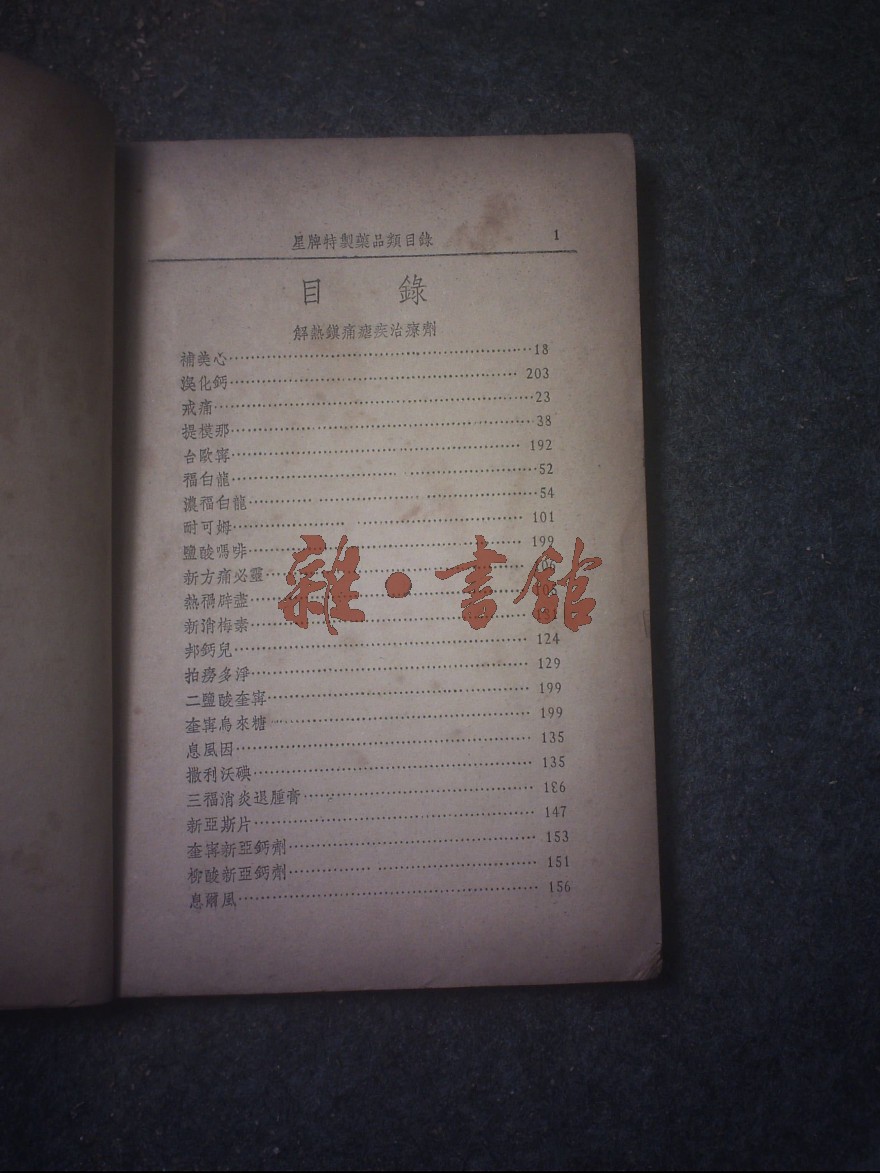 星牌特製藥品類目錄 1
目 錄
解熱鎮痛瘧疾治療劑
補美心 18
溴化鈣 203
戒痛 23
提模那 38
台歐寗 192
福白龍 52
濃福白龍 54
耐可姆 101
鹽酸嗎啡 199
新方痛必靈
熱得辟盡
新消梅素
邦鈣兒 124
拍癆多淨 129
二鹽酸奎寗 199
奎寗烏來糖 199
息風因 135
撒利沃碘 135
三福消炎退腫膏 186
新亞斯片 147
奎寗新亞鈣劑 153
柳酸新亞鈣劑 151
息爾風 156
雜·書館